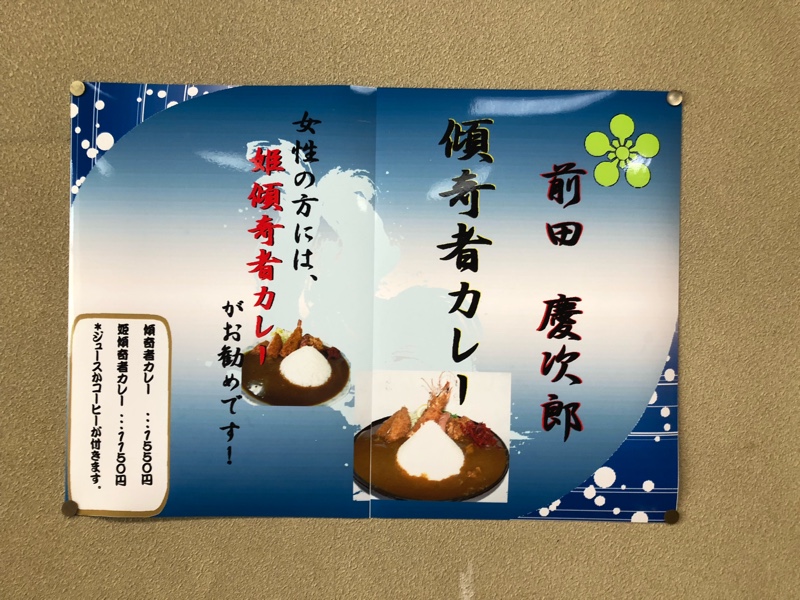 前田 慶次郎
傾奇者カレー
女性の方には、
姫傾奇者カレー
がお勧めです！
傾奇者カレー …1550円
姫傾奇者カレー …1150円
*ジュースかコーヒーが付きます。